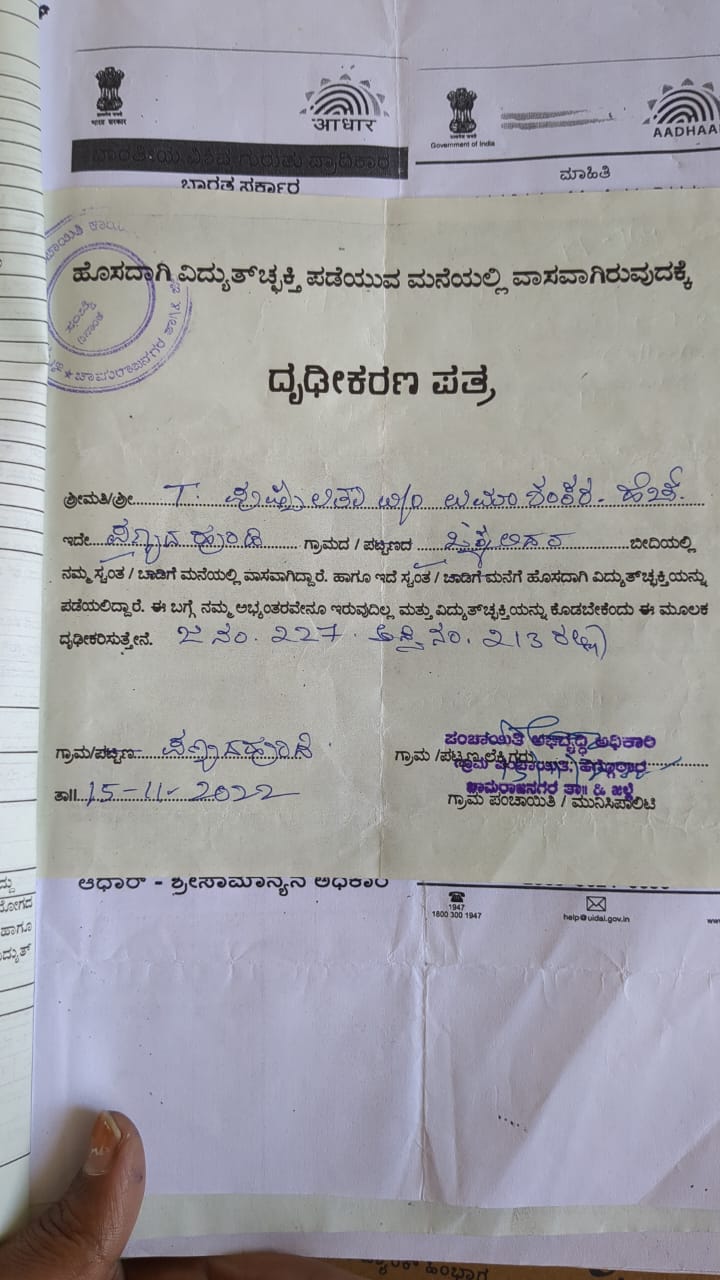 भारत सरकार
आधार
Government of India
AADHAA
ಭಾರತೀಯ ವಿಶಿಷ್ಟ ಗುರುತು ಪ್ರಾಧಿಕಾರ
ಭಾರತ ಸರ್ಕಾರ
ಮಾಹಿತಿ
ಚಾಮರಾಜನಗರ ತಾ॥ &
ಹೊಸದಾಗಿ ವಿದ್ಯುತ್‌ಚ್ಛಕ್ತಿ ಪಡೆಯುವ ಮನೆಯಲ್ಲಿ ವಾಸವಾಗಿರುವುದಕ್ಕೆ
ದೃಢೀಕರಣ ಪತ್ರ
ಶ್ರೀಮತಿ/ಶ್ರೀ T. ಪುಷ್ಪಲತಾ w/o ಉಮಾಶಂಕರ. ಹೆಚ್.
ಇದೇ ಪಣ್ಯದಹುಂಡಿ ಗ್ರಾಮದ / ಪಟ್ಟಣದ ಬೀದಿಯಲ್ಲಿ
ನಮ್ಮ ಸ್ವಂತ / ಬಾಡಿಗೆ ಮನೆಯಲ್ಲಿ ವಾಸವಾಗಿದ್ದಾರೆ. ಹಾಗೂ ಇದೆ ಸ್ವಂತ / ಬಾಡಿಗೆ ಮನೆಗೆ ಹೊಸದಾಗಿ ವಿದ್ಯುತ್‌ಚ್ಛಕ್ತಿಯನ್ನು
ಪಡೆಯಲಿದ್ದಾರೆ. ಈ ಬಗ್ಗೆ ನಮ್ಮ ಅಭ್ಯಂತರವೇನೂ ಇರುವುದಿಲ್ಲ ಮತ್ತು ವಿದ್ಯುತ್‌ಚ್ಛಕ್ತಿಯನ್ನು ಕೊಡಬೇಕೆಂದು ಈ ಮೂಲಕ
ದೃಢೀಕರಿಸುತ್ತೇನೆ. ಜ ನಂ. 227. ಆಸ್ತಿ ನಂ. 213 ರಲ್ಲಿ)
ಗ್ರಾಮ/ಪಟ್ಟಣ ಪಣ್ಯದಹುಂಡಿ
ಗ್ರಾಮ /ಪಟ್ಟಣ
ಪಂಚಾಯಿತಿ ಅಭಿವೃದ್ಧಿ ಅಧಿಕಾರಿ
ಗ್ರಾಮ ಪಂಚಾಯಿತಿ,
ಚಾಮರಾಜನಗರ ತಾ॥ & ಜಿಲ್ಲೆ
ತಾ॥ 15-11-2022
ಗ್ರಾಮ ಪಂಚಾಯಿತಿ / ಮುನಿಸಿಪಾಲಿಟಿ
ಆಧಾರ್ - ಶ್ರೀಸಾಮಾನ್ಯನ ಅಧಿಕಾರ
1947
1800 300 1947
help@uidai.gov.in